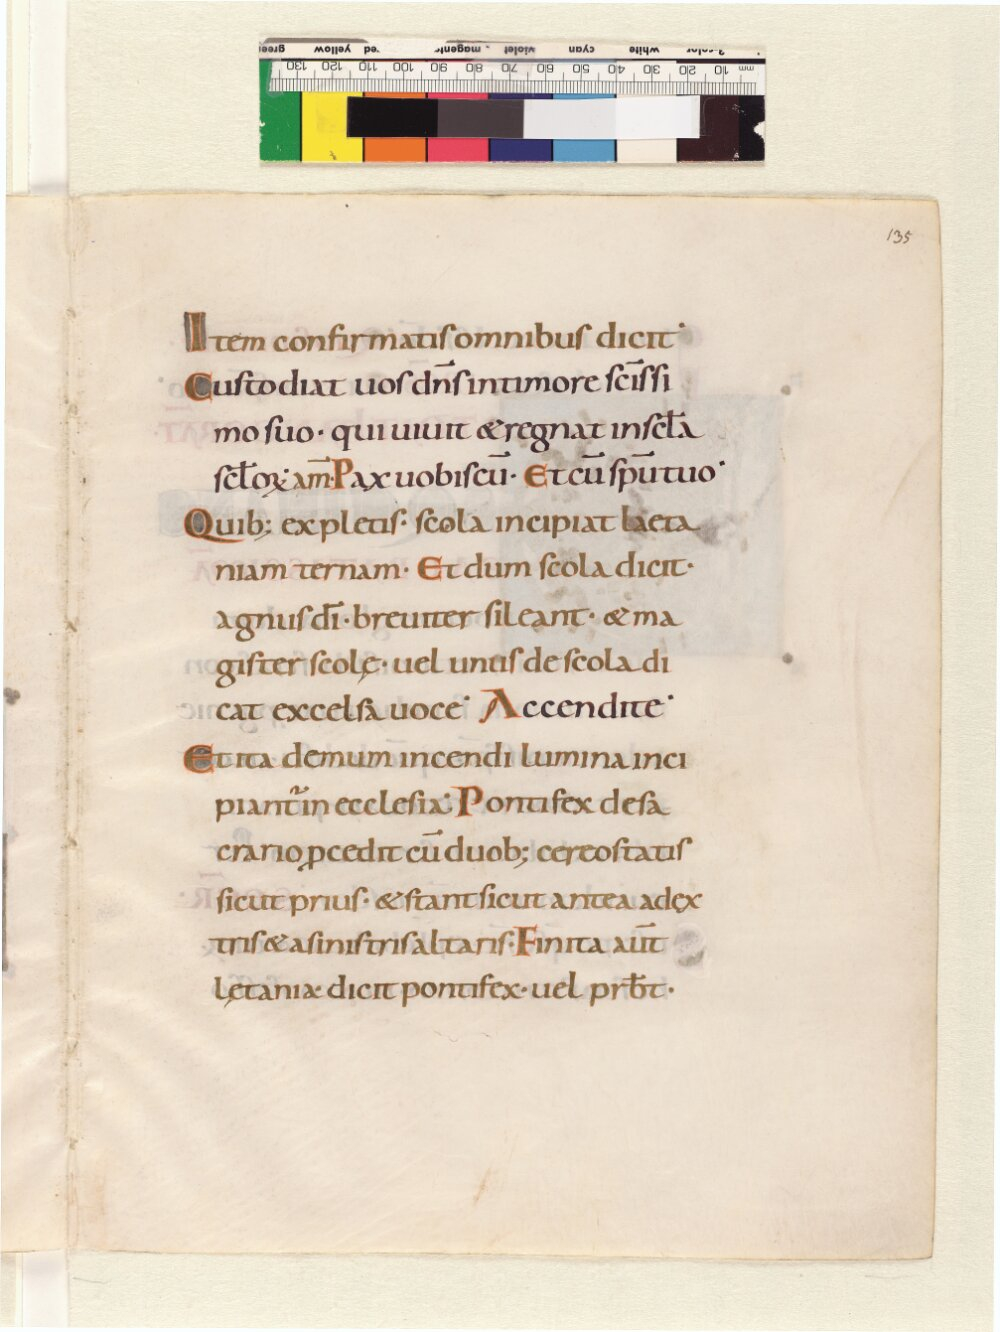 135
Item confirmatis omnibus dicit
Custodiat uos dn̄s in timore sc̄issi
mo suo · qui uiuit & regnat in scl̄a
scl̄oꝝ am̄ · Pax uobiscū · Et cū sp̄u tuo
Quib; expletis · scola incipiat laeta
niam ternam · Et dum scola dicit ·
agnus dī · breuiter sileant · & ma
gister scolę · uel unus de scola di
cat excelsa uoce Accendite
Et ita demum incendi lumina inci
piant᷑ in ecclesia Pontifex de sa
crario ꝓcedit cū duob; cereostatis
sicut prius · & stant sicut antea a dex
tris & a sinistris altaris · Finita aūt
lętania dicit pontifex · uel prb̄t ·